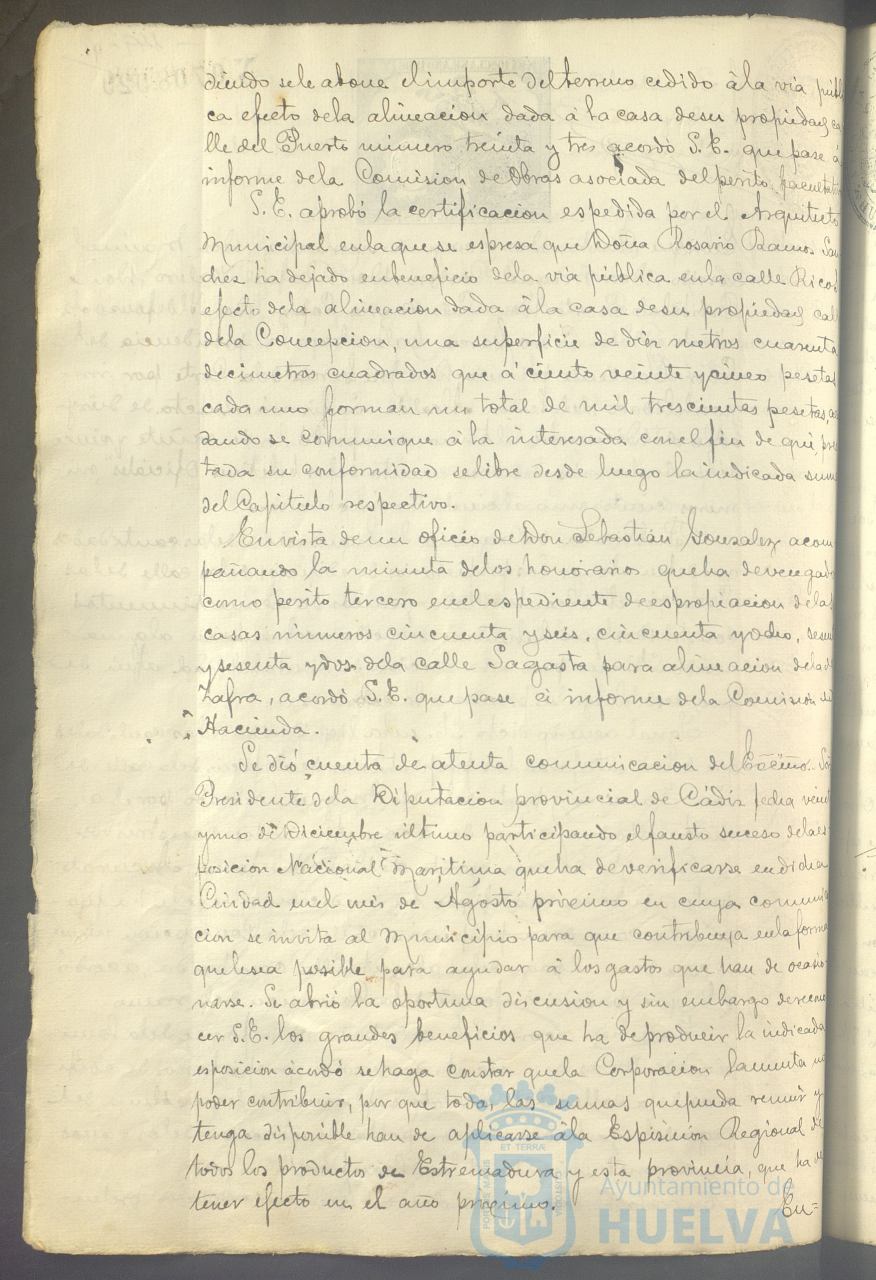 diendo se le abone el importe del terreno cedido á la via públi
ca efecto de la alineacion dada á la casa de su propiedad ca
lle del Puerto número treinta y tres acordó S. E. que pase á
informe de la Comision de Obras asociada del perito facultativo
S. E. aprobó la certificacion espedida por el Arquitecto
Municipal en la que se espresa que Doña Rosario Ramos San
chez ha dejado en beneficio de la via pública en la calle Ricos
efecto de la alineacion dada á la casa de su propiedad calle
de la Concepcion, una superficie de diez metros cuarenta
decimetros cuadrados que á ciento veinte y cinco pesetas
cada uno forman un total de mil trescientas pesetas, acor
dando se comunique á la interesada con el fin de que, pres
tada su conformidad se libre desde luego la indicada suma
del Capitulo respectivo.
En vista de un oficio de Don Sebastián Gonzalez acom
pañando la minuta de los honorarios que ha devengado
como perito tercero en el espediente de espropiacion de las
casas números cincuenta y seis, cincuenta y ocho, sesenta
y sesenta y dos de la calle Sagasta para alineacion de la de
Zafra, acordó S. E. que pase á informe de la Comision de
Hacienda.
Se dió cuenta de atenta comunicacion del Excmo. Sor
Presidente de la Diputacion provincial de Cádiz fecha veinte
y uno de Diciembre último participando el fausto suceso de la es
posicion Nacional Marítima que ha de verificarse en dicha
Ciudad en el mes de Agosto próximo en cuya comunica
cion se invita al Municipio para que contribuya en la forma
que le sea posible para ayudar á los gastos que han de ocasio
narse. Se abrió la oportuna discusion y sin embargo de recono
cer S. E. los grandes beneficios que ha de producir la indicada
esposicion acordó se haga constar que la Corporacion lamenta no
poder contribuir, por que todas las sumas que pueda reunir y
tenga disponible han de aplicarse á la Esposicion Regional de
todos los productos de Estremadura y esta provincia, que ha de
tener efecto en el año próximo.
En=
ET TERRÆ
Ayuntamiento de
HUELVA